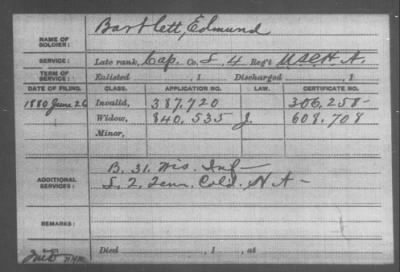 Bartlett, Edmund
NAME OF SOLDIER:
SERVICE: Late rank, Cap. Co. L, 4 Reg't U.S.C.H.A.
TERM OF SERVICE: Enlisted , 1 Discharged , 1
DATE OF FILING. CLASS. APPLICATION NO. LAW. CERTIFICATE NO.
1880 June 26 Invalid, 387.720 306.258-
Widow, 840.535 J. 608.708
Minor,
ADDITIONAL SERVICES: B. 31. Wis. Inf-
L. 2. Tenn. Cold. H A-
REMARKS:
Died , 1 , at